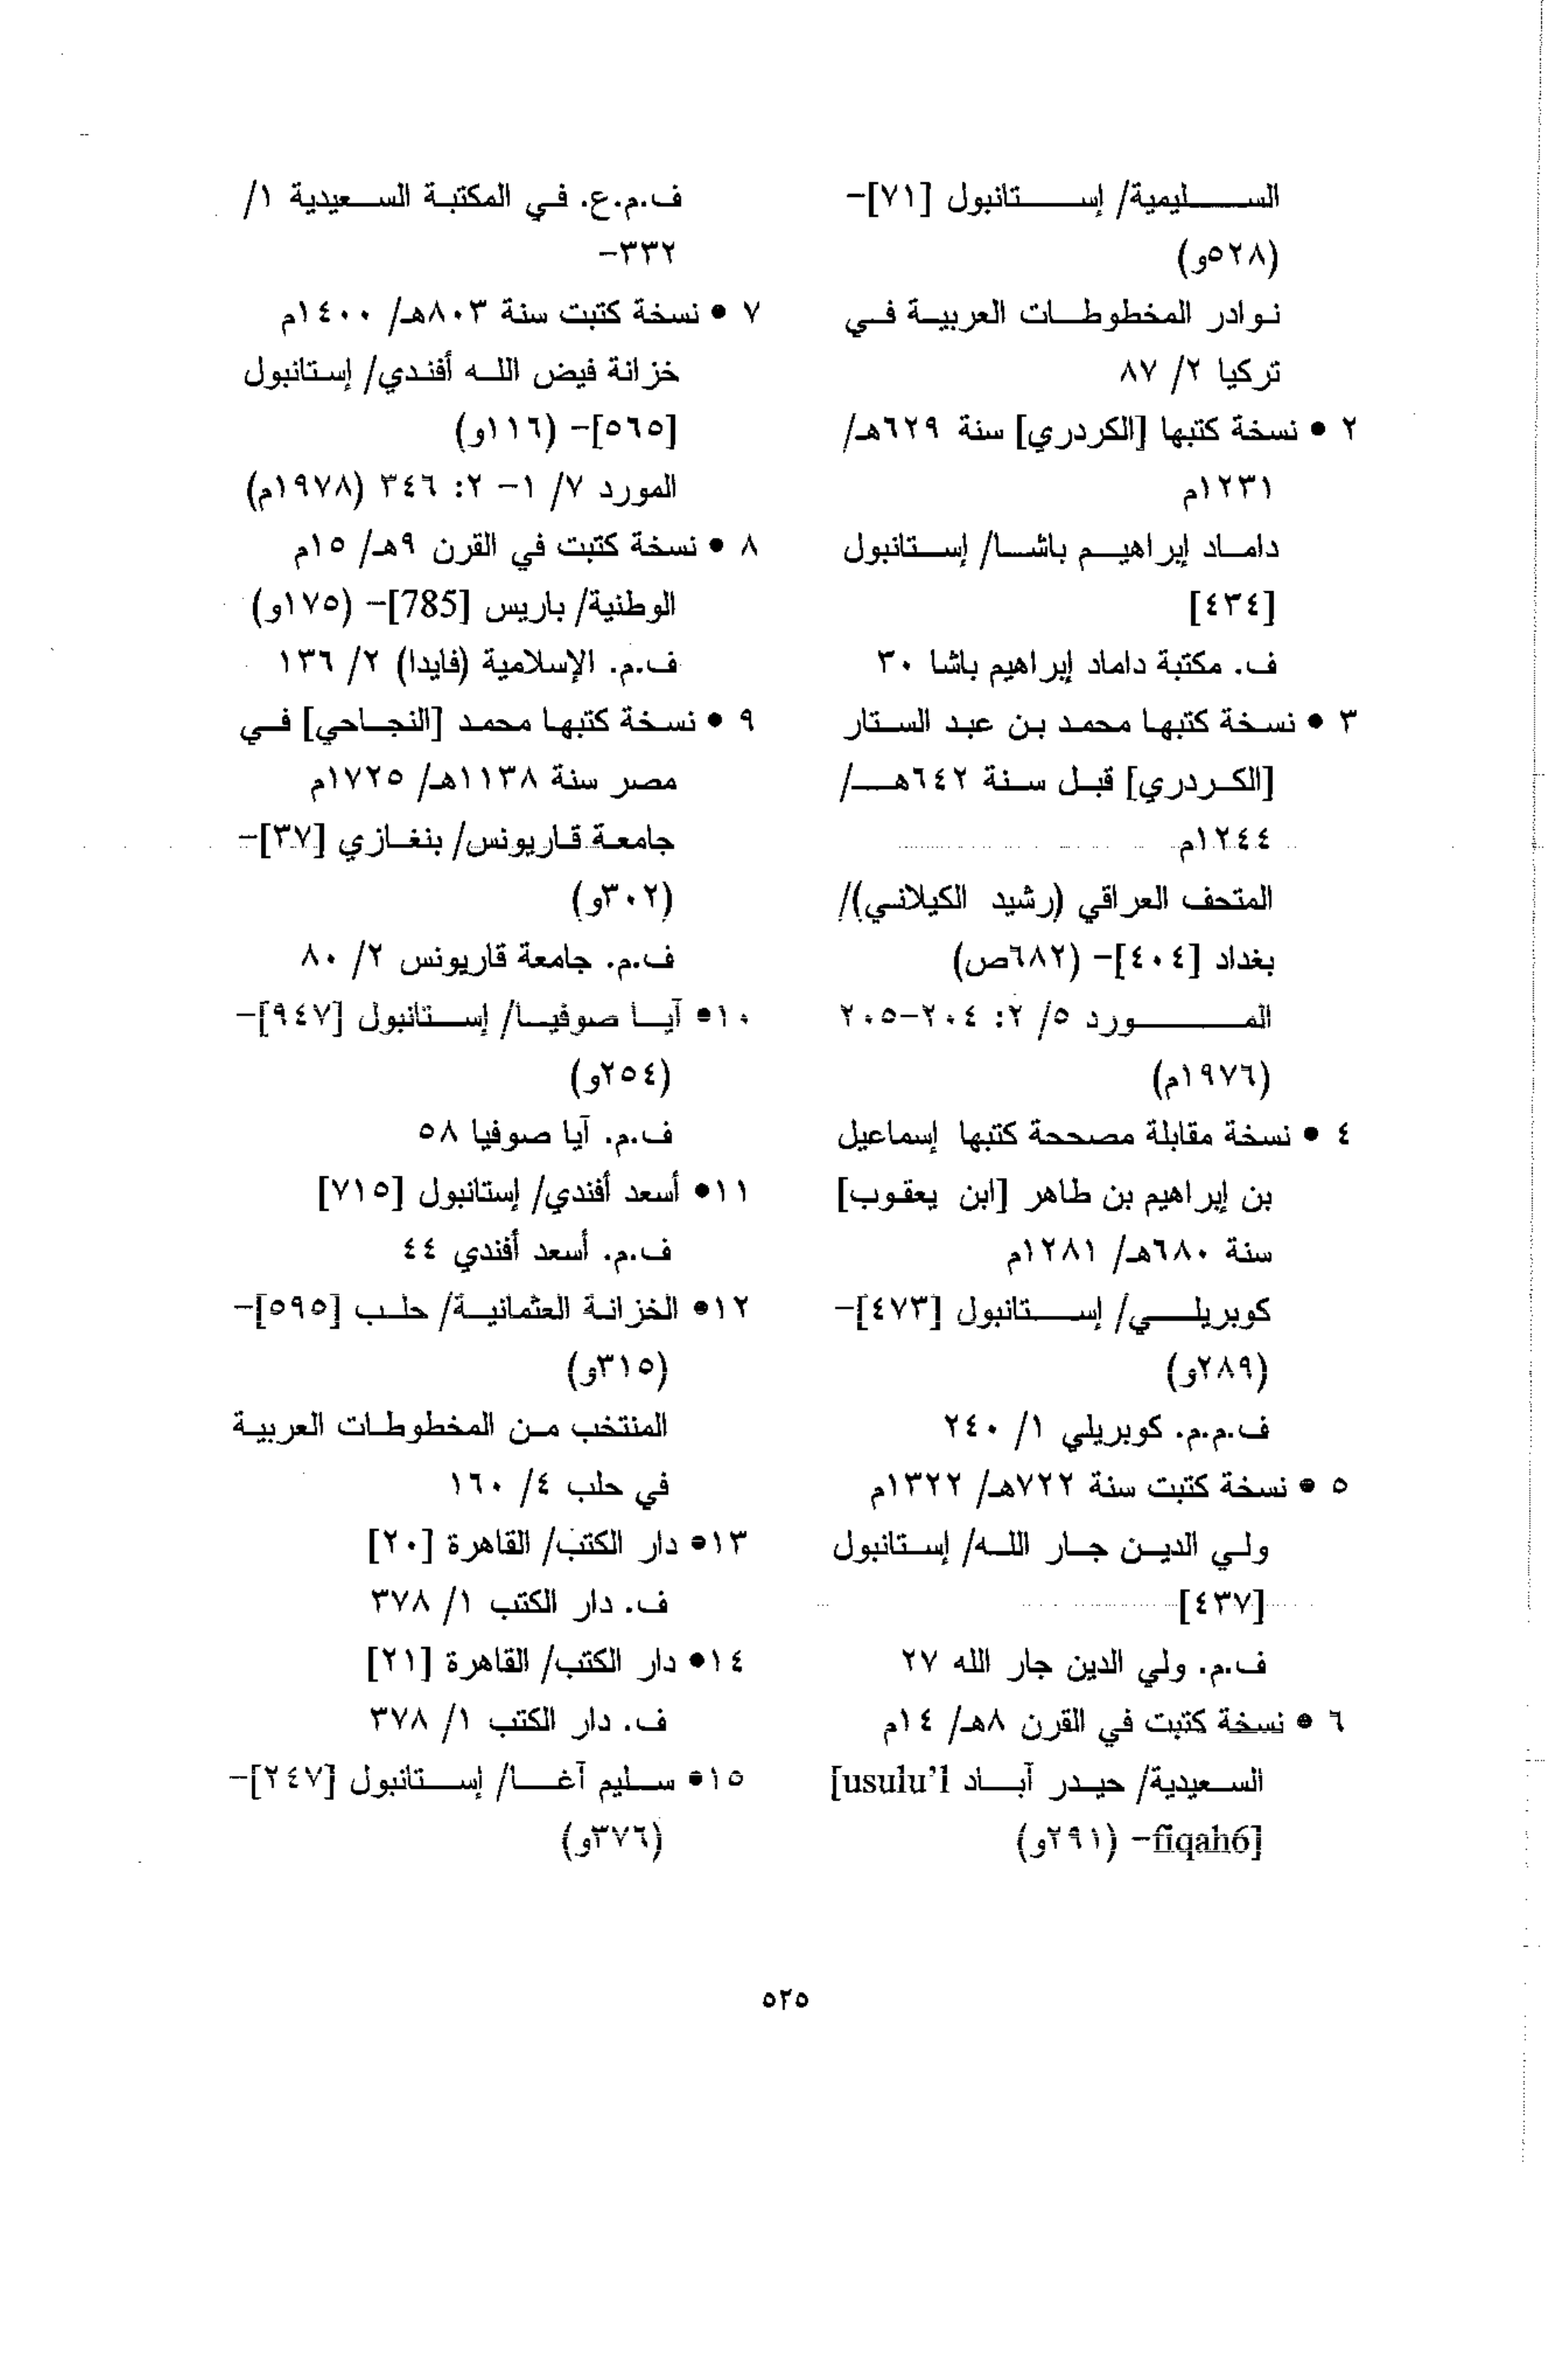 السليمية/ إستانبول [٧١]-
(٥٢٨و)
نوادر المخطوطات العربية في
تركيا ٢/ ٨٧
٢ • نسخة كتبها [الكردري] سنة ٦٢٩هـ/
١٢٣١م
داماد إبراهيم باشا/ إستانبول
[٤٣٤]
ف. مكتبة داماد إبراهيم باشا ٣٠
٣ • نسخة كتبها محمد بن عبد الستار
[الكردري] قبل سنة ٦٤٢هـ/
١٢٤٤م
المتحف العراقي (رشيد الكيلاني)/
بغداد [٤٠٤]- (٦٨٢ص)
المورد ٥/ ٢: ٢٠٤-٢٠٥
(١٩٧٦م)
٤ • نسخة مقابلة مصححة كتبها إسماعيل
بن إبراهيم بن طاهر [ابن يعقوب]
سنة ٦٨٠هـ/ ١٢٨١م
كوبريلي/ إستانبول [٤٧٣]-
(٢٨٩و)
ف.م.م. كوبريلي ١/ ٢٤٠
٥ • نسخة كتبت سنة ٧٢٢هـ/ ١٣٢٢م
ولي الدين جار الله/ إستانبول
[٤٣٧]
ف.م. ولي الدين جار الله ٢٧
٦ • نسخة كتبت في القرن ٨هـ/ ١٤م
السعيدية/ حيدر آباد [usulu'l
fiqah6]- (٢٩١و)
ف.م.ع. في المكتبة السعيدية ١/
٣٣٢-
٧ • نسخة كتبت سنة ٨٠٣هـ/ ١٤٠٠م
خزانة فيض الله أفندي/ إستانبول
[٥٦٥]- (١١٦و)
المورد ٧/ ١- ٢: ٣٤٦ (١٩٧٨م)
٨ • نسخة كتبت في القرن ٩هـ/ ١٥م
الوطنية/ باريس [785]- (١٧٥و)
ف.م. الإسلامية (فايدا) ٢/ ١٣٦
٩ • نسخة كتبها محمد [النجاحي] في
مصر سنة ١١٣٨هـ/ ١٧٢٥م
جامعة قاريونس/ بنغازي [٣٧]-
(٣٠٢و)
ف.م. جامعة قاريونس ٢/ ٨٠
١٠• آيا صوفيا/ إستانبول [٩٤٧]-
(٢٥٤و)
ف.م. آيا صوفيا ٥٨
١١• أسعد أفندي/ إستانبول [٧١٥]
ف.م. أسعد أفندي ٤٤
١٢• الخزانة العثمانية/ حلب [٥٩٥]-
(٣١٥و)
المنتخب من المخطوطات العربية
في حلب ٤/ ١٦٠
١٣• دار الكتب/ القاهرة [٢٠]
ف. دار الكتب ١/ ٣٧٨
١٤• دار الكتب/ القاهرة [٢١]
ف. دار الكتب ١/ ٣٧٨
١٥• سليم آغا/ إستانبول [٢٤٧]-
(٣٧٦و)
٥٢٥